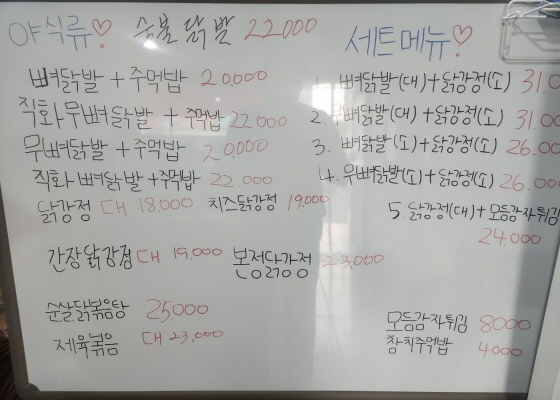 야식류♡ 숯불 닭발 22000
뼈닭발 + 주먹밥 20,000
직화무뼈닭발 + 주먹밥 22,000
무뼈닭발 + 주먹밥 20,000
직화 뼈닭발 + 주먹밥 22,000
닭강정 대 18,000 치즈닭강정 19,000
간장닭강정 대 19,000 23,000
순살닭볶음탕 25000
제육볶음 대 23,000
세트메뉴♡
1. 뼈닭발(대)+닭강정(소) 31,0
2. 무뼈닭발(대)+닭강정(소) 31,00
3. 뼈닭발(소)+닭강정(소) 26.00
4. 무뼈닭발(소)+닭강정(소) 26,00
5. 닭강정(대)+모듬감자튀김
24,000
모듬감자튀김 8000
참치주먹밥 4,000